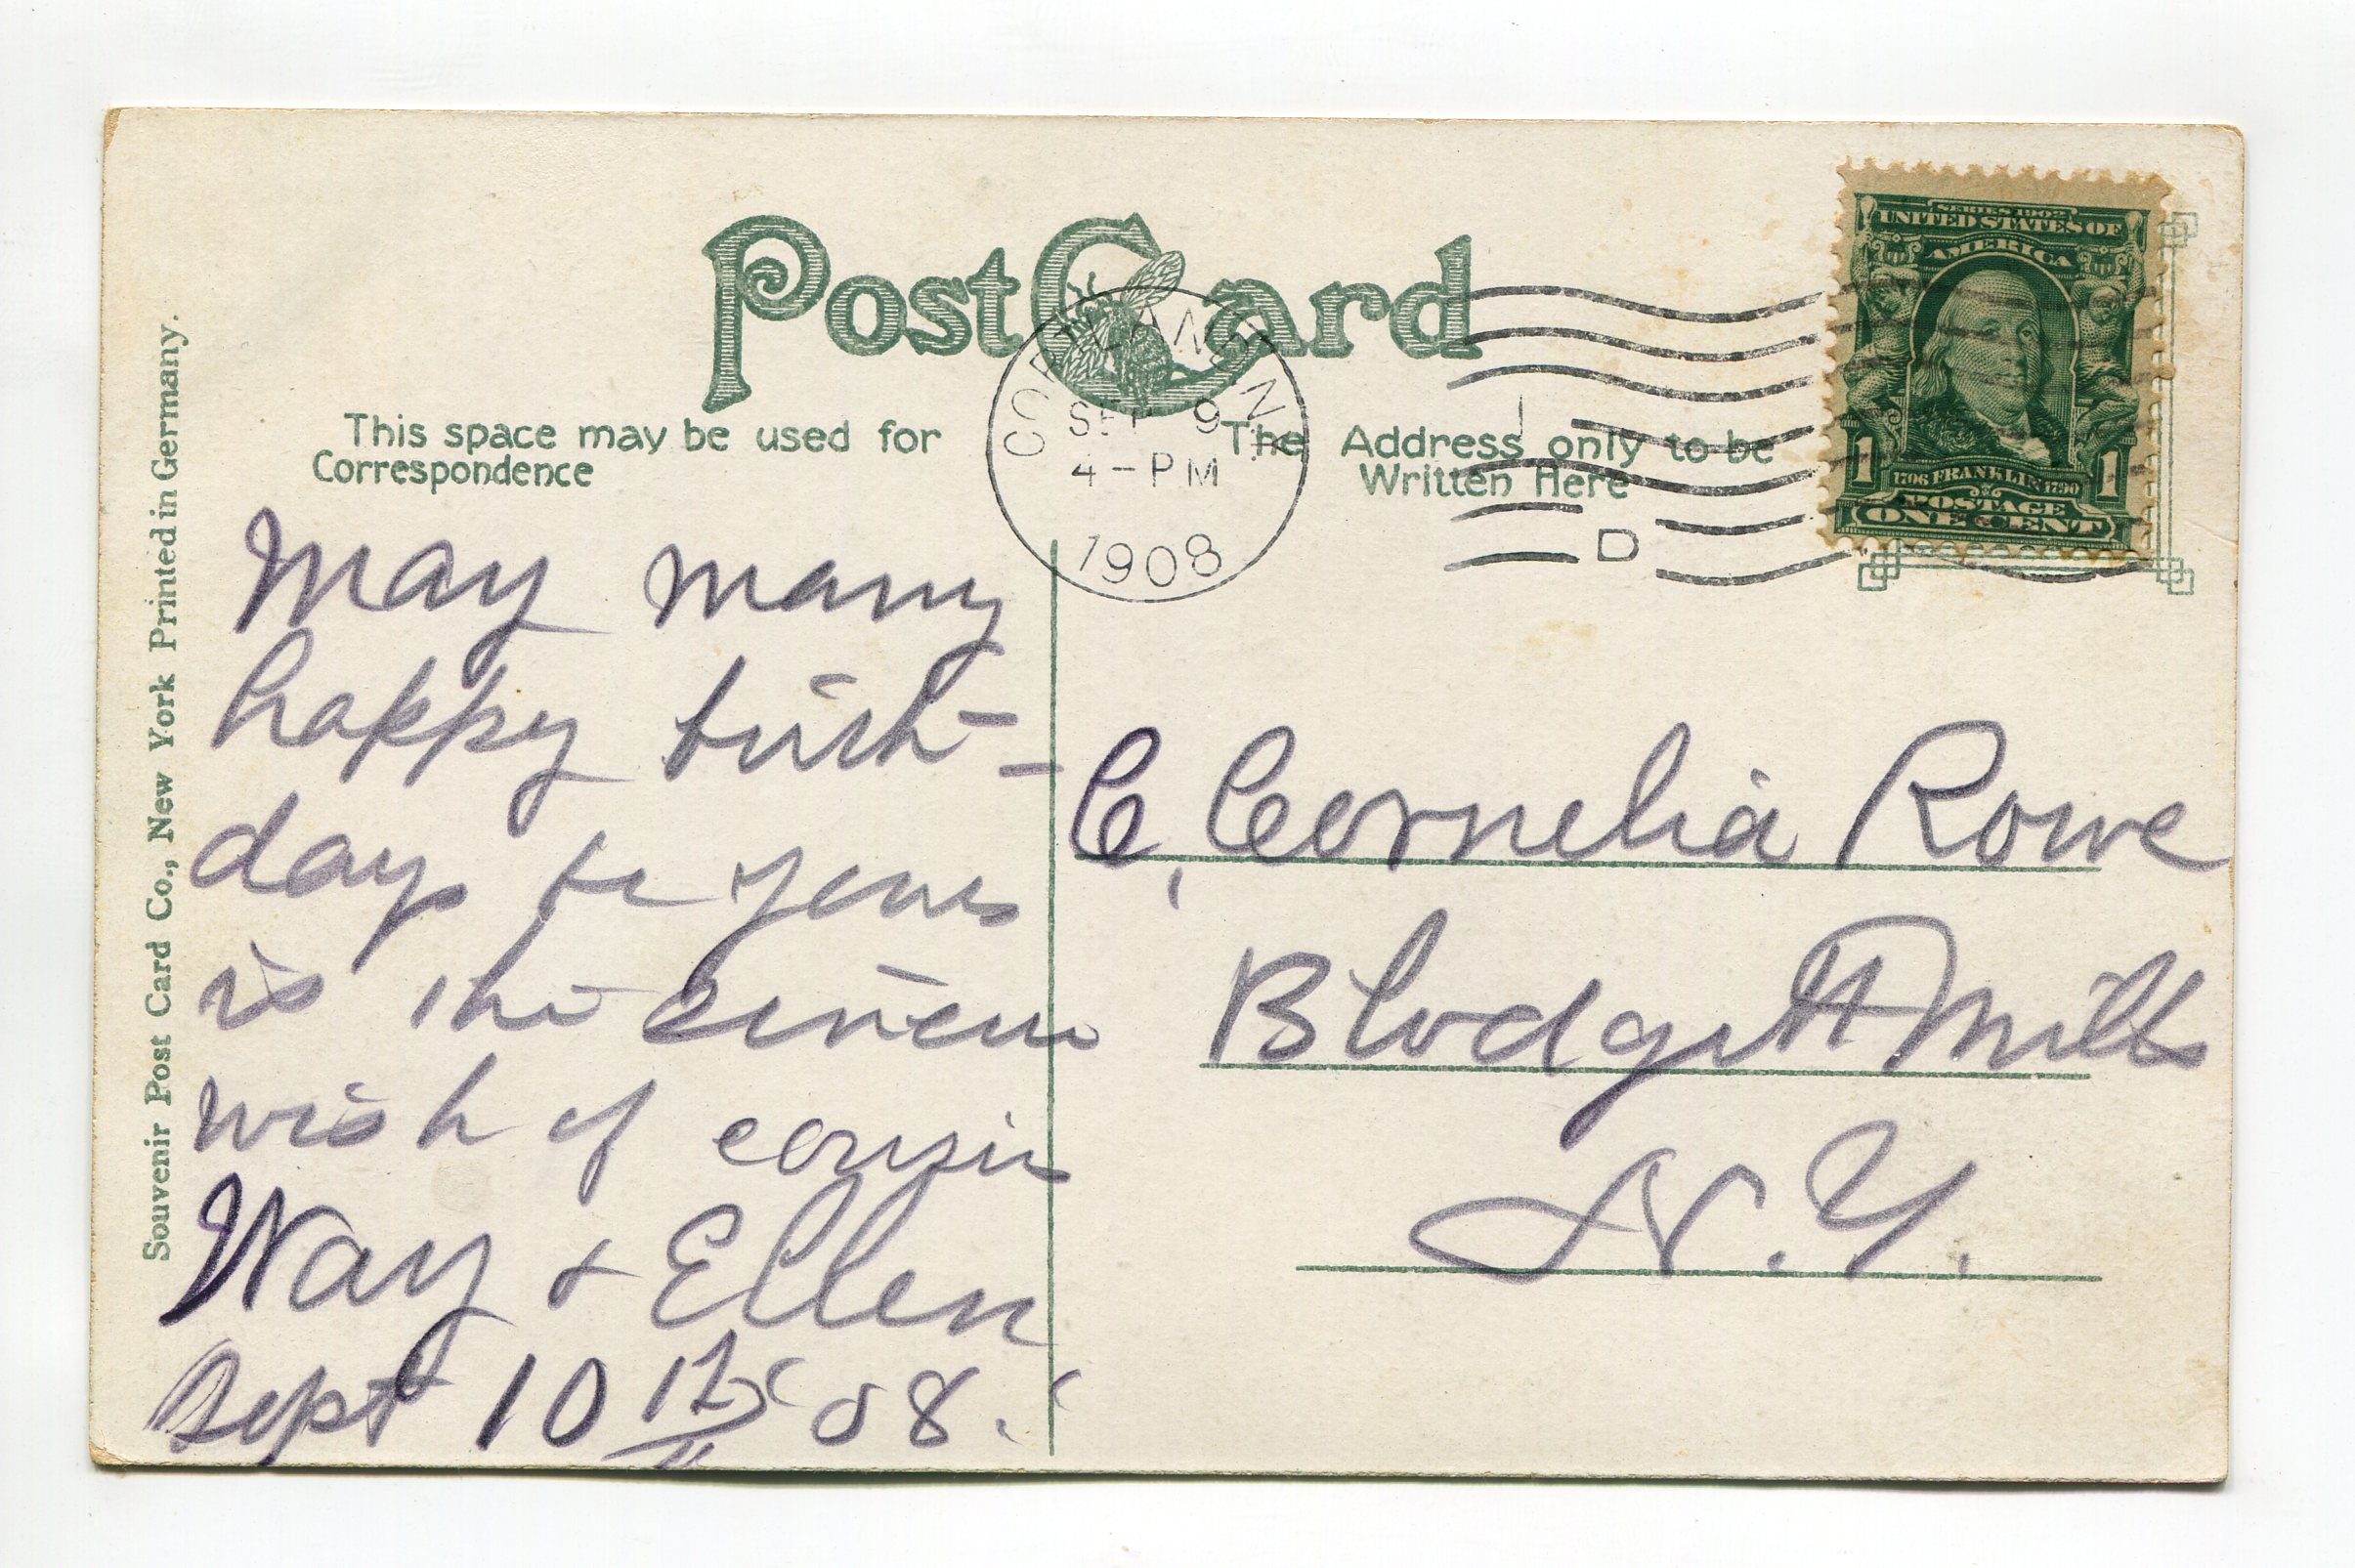 Post Card
This space may be used for
Correspondence
The Address only to be
Written Here
CORTLAND, N.Y.
SEP 9
4-PM
1908
D
SERIES 1902
UNITED STATES OF
AMERICA
1706 FRANKLIN 1790
1 1
POSTAGE
ONE CENT
Souvenir Post Card Co., New York Printed in Germany.
May many
happy birth-
days be yours
is the sincere
wish of cousin
Way + Ellen
Sept 10th 08.
C. Cornelia Rowe
Blodgett Mills
N.Y.